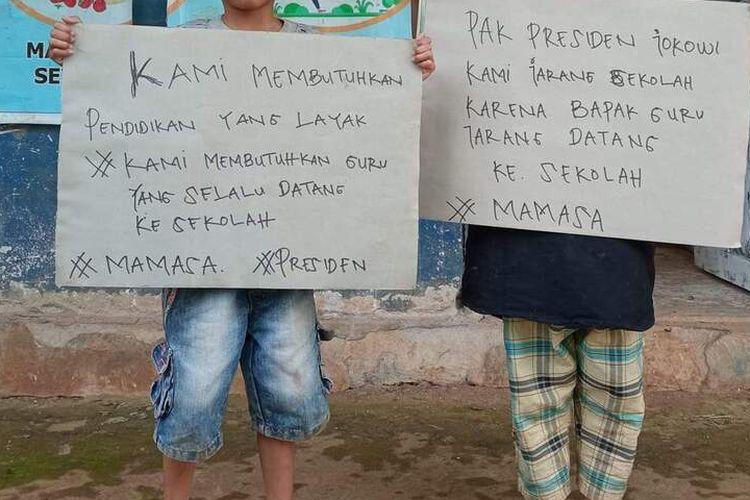 MA
SE
KAMI MEMBUTUHKAN
PENDIDIKAN YANG LAYAK
# KAMI MEMBUTUHKAN GURU
YANG SELALU DATANG
KE SEKOLAH
# MAMASA. #PRESIDEN
PAK PRESIDEN JOKOWI
KAMI JARANG SEKOLAH
KARENA BAPAK GURU
JARANG DATANG
KE. SEKOLAH
# MAMASA